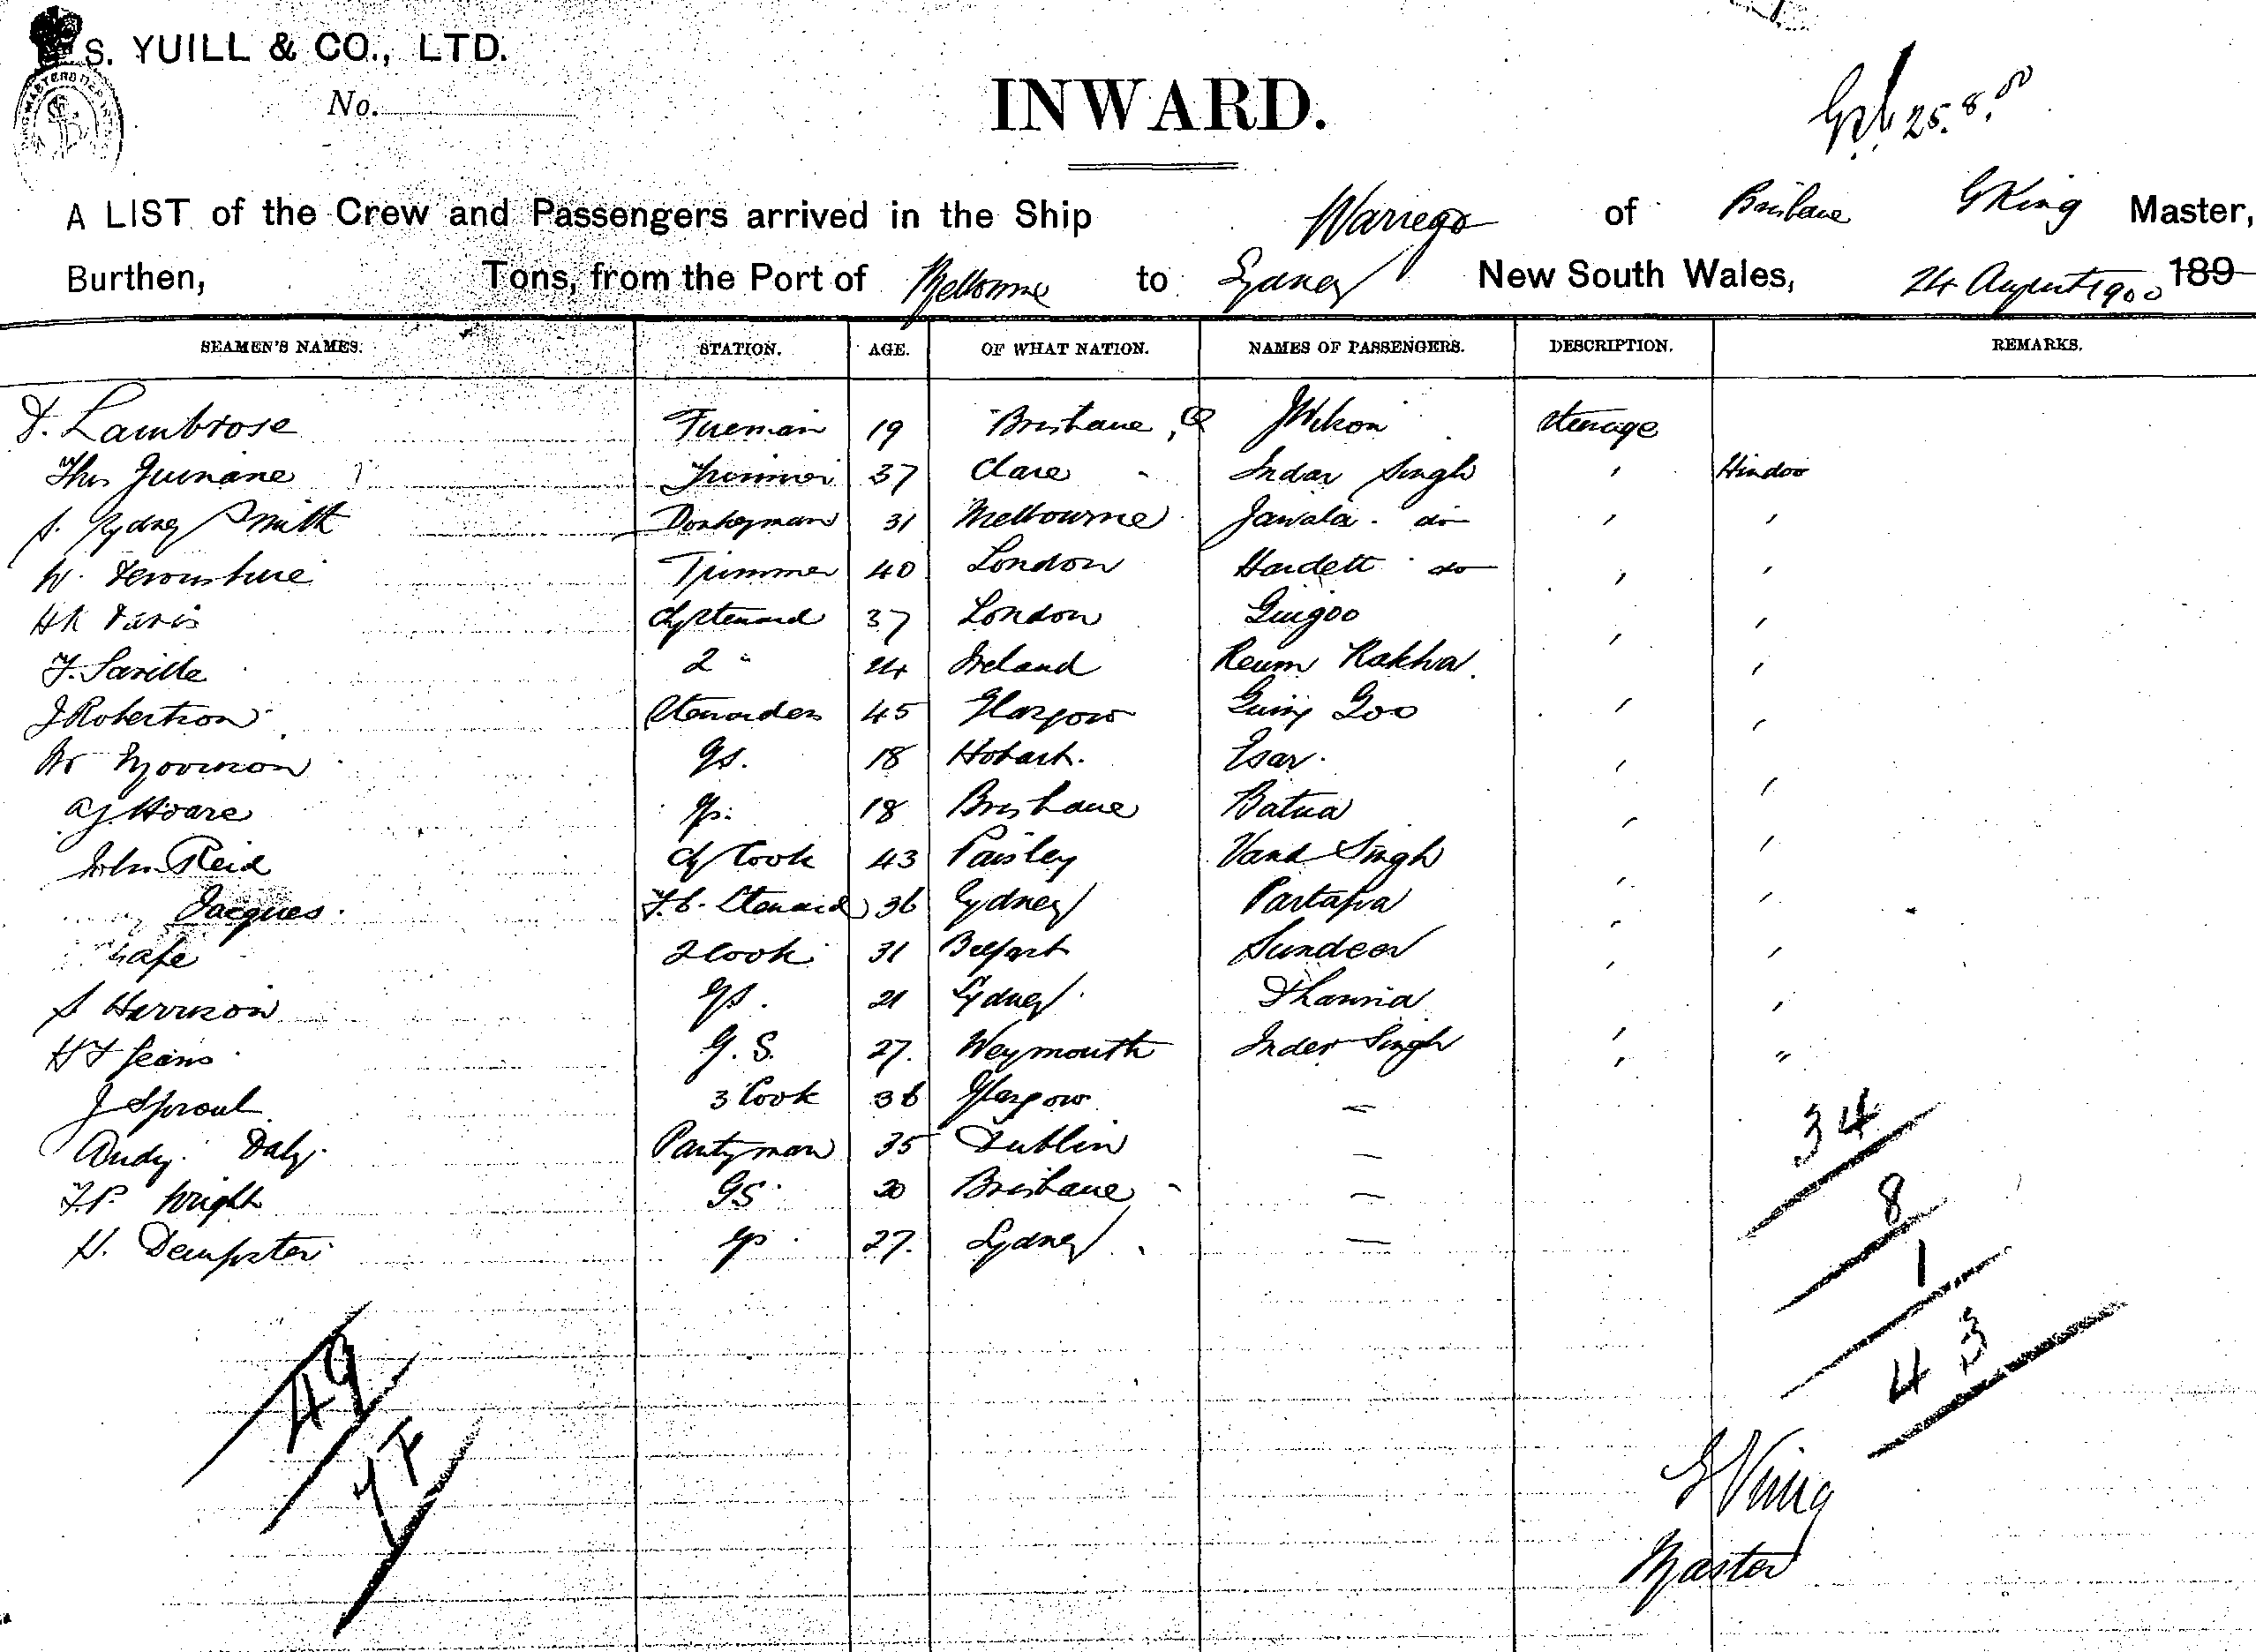 S. YUILL & CO., LTD.
No.
INWARD.
25.8.00
A LIST of the Crew and Passengers arrived in the Ship Warrego of Brisbane G King Master,
Burthen, Tons, from the Port of Melbourne to Sydney New South Wales, 24 August 1900 189
SEAMEN'S NAMES. STATION. AGE. OF WHAT NATION. NAMES OF PASSENGERS. DESCRIPTION. REMARKS.
Lambrose Fireman 19 Brisbane, Q J Wilson Steerage
Thos Guinane Trimmer 37 Clare Indar Singh " Hindoo
S. Sydney Smith Donkeyman 31 Melbourne Jawala do " "
W. Devonshire Trimmer 40 London Hardett do " "
HR Davis Ch Steward 37 London Guigoo " "
F. Saville 2 " 24 Ireland Reum Rakha " "
J Robertson Stewardess 45 Glasgow Goo " "
Wr Morrison GS. 18 Hobart. Esar. " "
AJ Hoare GS. 18 Brisbane Batua " "
John Reid Ch Cook 43 Paisley Singh " "
Jacques. F.C. Steward 36 Sydney Partapa " "
2 Cook 31 Belfast Sundeer " "
S Harrison GS. 21 Sydney "
HF Jeans G.S. 27. Weymouth Inder Singh " "
J Sproul 3 Cook 36 Glasgow —
Andy. Daly. Pantryman 35 Dublin —
F.P. Wright GS 20 Brisbane —
H. Dempster GS 27. Sydney —
34
8
1
43
49
G King
Master